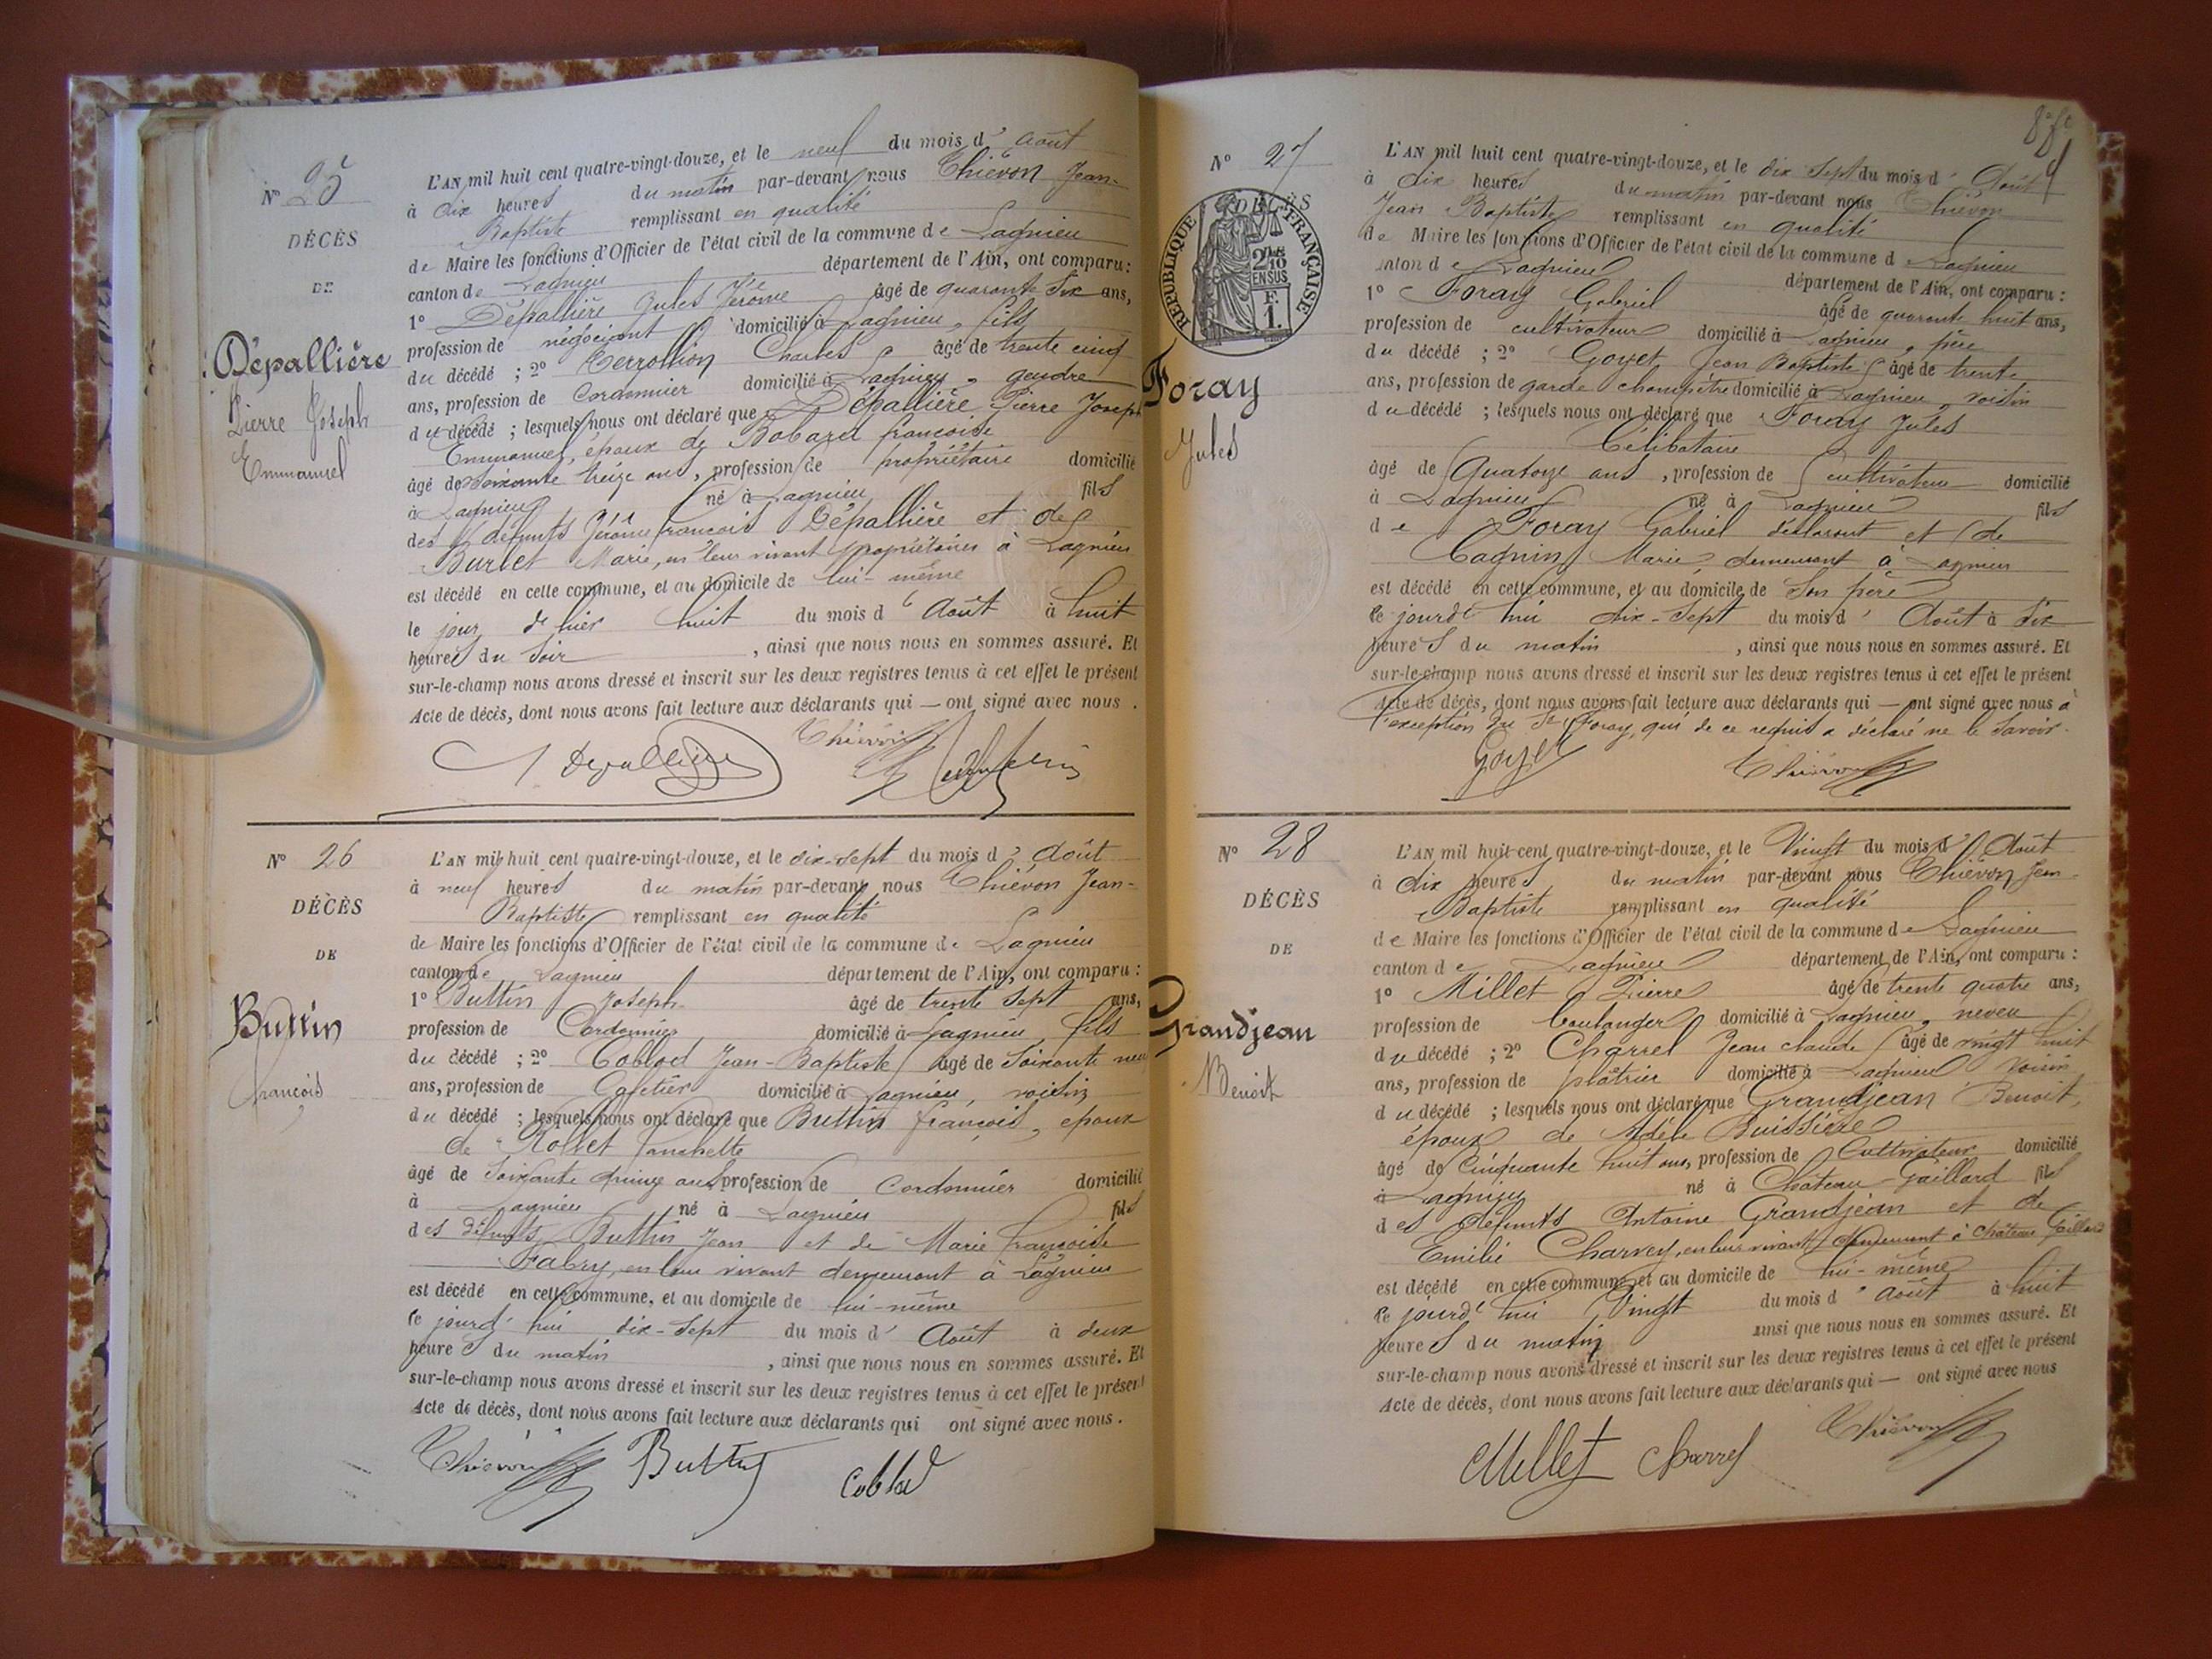 N° 25
DÉCÈS
DE
Dépallière
Pierre Joseph
Emmanuel
L'AN mil huit cent quatre-vingt-douze, et le neuf du mois d' Août
à dix heures du matin par-devant nous Thiévon Jean-
Baptiste remplissant en qualité
de Maire les fonctions d'Officier de l'état civil de la commune de Lagnieu
canton de Lagnieu département de l'Ain, ont comparu :
1° Dépallière Jules Jérôme âgé de quarante six ans,
profession de négociant domicilié à Lagnieu, fils
du décédé ; 2° Terrollion Charles âgé de trente cinq
ans, profession de Cordonnier domicilié à Lagnieu, gendre
du décédé ; lesquels nous ont déclaré que Dépallière Pierre Joseph
Emmanuel, époux de Bobard françoise
âgé de soixante treize ans, profession de propriétaire domicilié
à Lagnieu né à Lagnieu fils
des défunts Jérôme françois Dépallière et de
Burlet Marie, en leur vivant propriétaires à Lagnieu
est décédé en cette commune, et au domicile de lui-même
le jour d'hier huit du mois d' Août à huit
heures du soir , ainsi que nous nous en sommes assuré. Et
sur-le-champ nous avons dressé et inscrit sur les deux registres tenus à cet effet le présent
Acte de décès, dont nous avons fait lecture aux déclarants qui — ont signé avec nous .
Thiévon
J Depallière
N° 26
DÉCÈS
DE
Buttin
François
L'AN mil huit cent quatre-vingt-douze, et le dix-sept du mois d' Août
à neuf heures du matin par-devant nous Thiévon Jean-
Baptiste remplissant en qualité
de Maire les fonctions d'Officier de l'état civil de la commune de Lagnieu
canton de Lagnieu département de l'Ain, ont comparu :
1° Buttin Joseph âgé de trente sept ans,
profession de Cordonnier domicilié à Lagnieu, fils
du décédé ; 2° Coblod Jean-Baptiste âgé de soixante neuf
ans, profession de Cafetier domicilié à Lagnieu, voisin
du décédé ; lesquels nous ont déclaré que Buttin françois, époux
de Rollet fanchette
âgé de soixante quinze ans, profession de Cordonnier domicilié
à Lagnieu né à Lagnieu fils
des défunts Buttin Jean et de Marie françoise
Fabry, en leur vivant demeurant à Lagnieu
est décédé en cette commune, et au domicile de lui-même
le jourd'hui dix-sept du mois d' Août à deux
heures du matin , ainsi que nous nous en sommes assuré. Et
sur-le-champ nous avons dressé et inscrit sur les deux registres tenus à cet effet le présent
Acte de décès, dont nous avons fait lecture aux déclarants qui ont signé avec nous .
Thiévon Buttin Coblod
N° 27
DÉCÈS
RÉPUBLIQUE FRANÇAISE
2/10
EN SUS
F.
1.
Foray
Jules
L'AN mil huit cent quatre-vingt-douze, et le dix sept du mois d' Août
à dix heures du matin par-devant nous Thiévon
Jean Baptiste remplissant en qualité
de Maire les fonctions d'Officier de l'état civil de la commune de Lagnieu
canton de Lagnieu département de l'Ain, ont comparu :
1° Foray Gabriel âgé de quarante huit ans,
profession de cultivateur domicilié à Lagnieu, père
du décédé ; 2° Goyet Jean Baptiste âgé de trente
ans, profession de garde champêtre domicilié à Lagnieu, voisin
du décédé ; lesquels nous ont déclaré que Foray Jules
Célibataire
âgé de Quatorze ans, profession de cultivateur domicilié
à Lagnieu né à Lagnieu fils
de Foray Gabriel déclarant et de
Cagnin Marie demeurant à Lagnieu
est décédé en cette commune, et au domicile de son père
le jourd'hui dix-sept du mois d' Août à six
heures du matin , ainsi que nous nous en sommes assuré. Et
sur-le-champ nous avons dressé et inscrit sur les deux registres tenus à cet effet le présent
Acte de décès, dont nous avons fait lecture aux déclarants qui — ont signé avec nous à
l'exception du Sr Foray, qui de ce requis a déclaré ne le savoir.
Goyet Thiévon
N° 28
DÉCÈS
DE
Grandjean
Benoit
L'AN mil huit cent quatre-vingt-douze, et le Vingt du mois d' Août
à dix heures du matin par-devant nous Thiévon Jean-
Baptiste remplissant en qualité
de Maire les fonctions d'Officier de l'état civil de la commune de Lagnieu
canton de Lagnieu département de l'Ain, ont comparu :
1° Millet Pierre âgé de trente quatre ans,
profession de boulanger domicilié à Lagnieu, neveu
du décédé ; 2° Charrel Jean claude âgé de vingt huit
ans, profession de plâtrier domicilié à Lagnieu voisin
du décédé ; lesquels nous ont déclaré que Grandjean Benoit,
époux de Adèle Buissière
âgé de Cinquante huit ans, profession de Cultivateur domicilié
à Lagnieu né à Château-Gaillard fils
des défunts Antoine Grandjean et de
Emilie Charvey, en leur vivant demeurant à Château Gaillard
est décédé en cette commune, et au domicile de lui-même
le jourd'hui Vingt du mois d' Août à huit
heures du matin ainsi que nous nous en sommes assuré. Et
sur-le-champ nous avons dressé et inscrit sur les deux registres tenus à cet effet le présent
Acte de décès, dont nous avons fait lecture aux déclarants qui — ont signé avec nous
Millet Charrel Thiévon